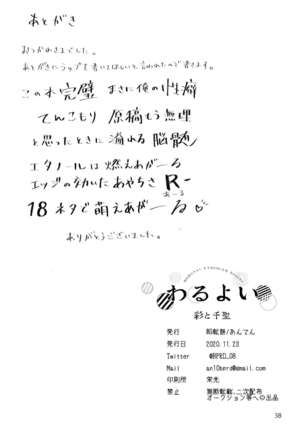 あとがき
おつかれさまでした。
あとがきにラップを書いてほしいと言われたので書きます。
この本完璧 まさに俺の性癖
てんこもり 原稿もう無理
と思ったときに溢れる脳髄
エタノールは燃えあがーる
エッジの効いたあやちさ R-
あーる
18ネタで萌えあがーる
ありがとうございました。
わるよい
彩と千聖
発行
発行日 2020.11.23
Twitter
Mail
印刷所 栄光
禁止 無断転載、二次配布
オークション等への出品
38